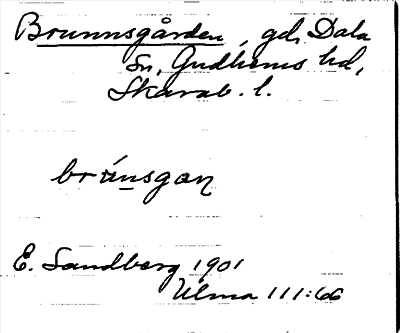 Brunnsgården, gd, Dala
Sn, Gudhems hd,
Skarab. l.
brúnsgaɳ
E. Sandberg 1901
Ulma 111:66